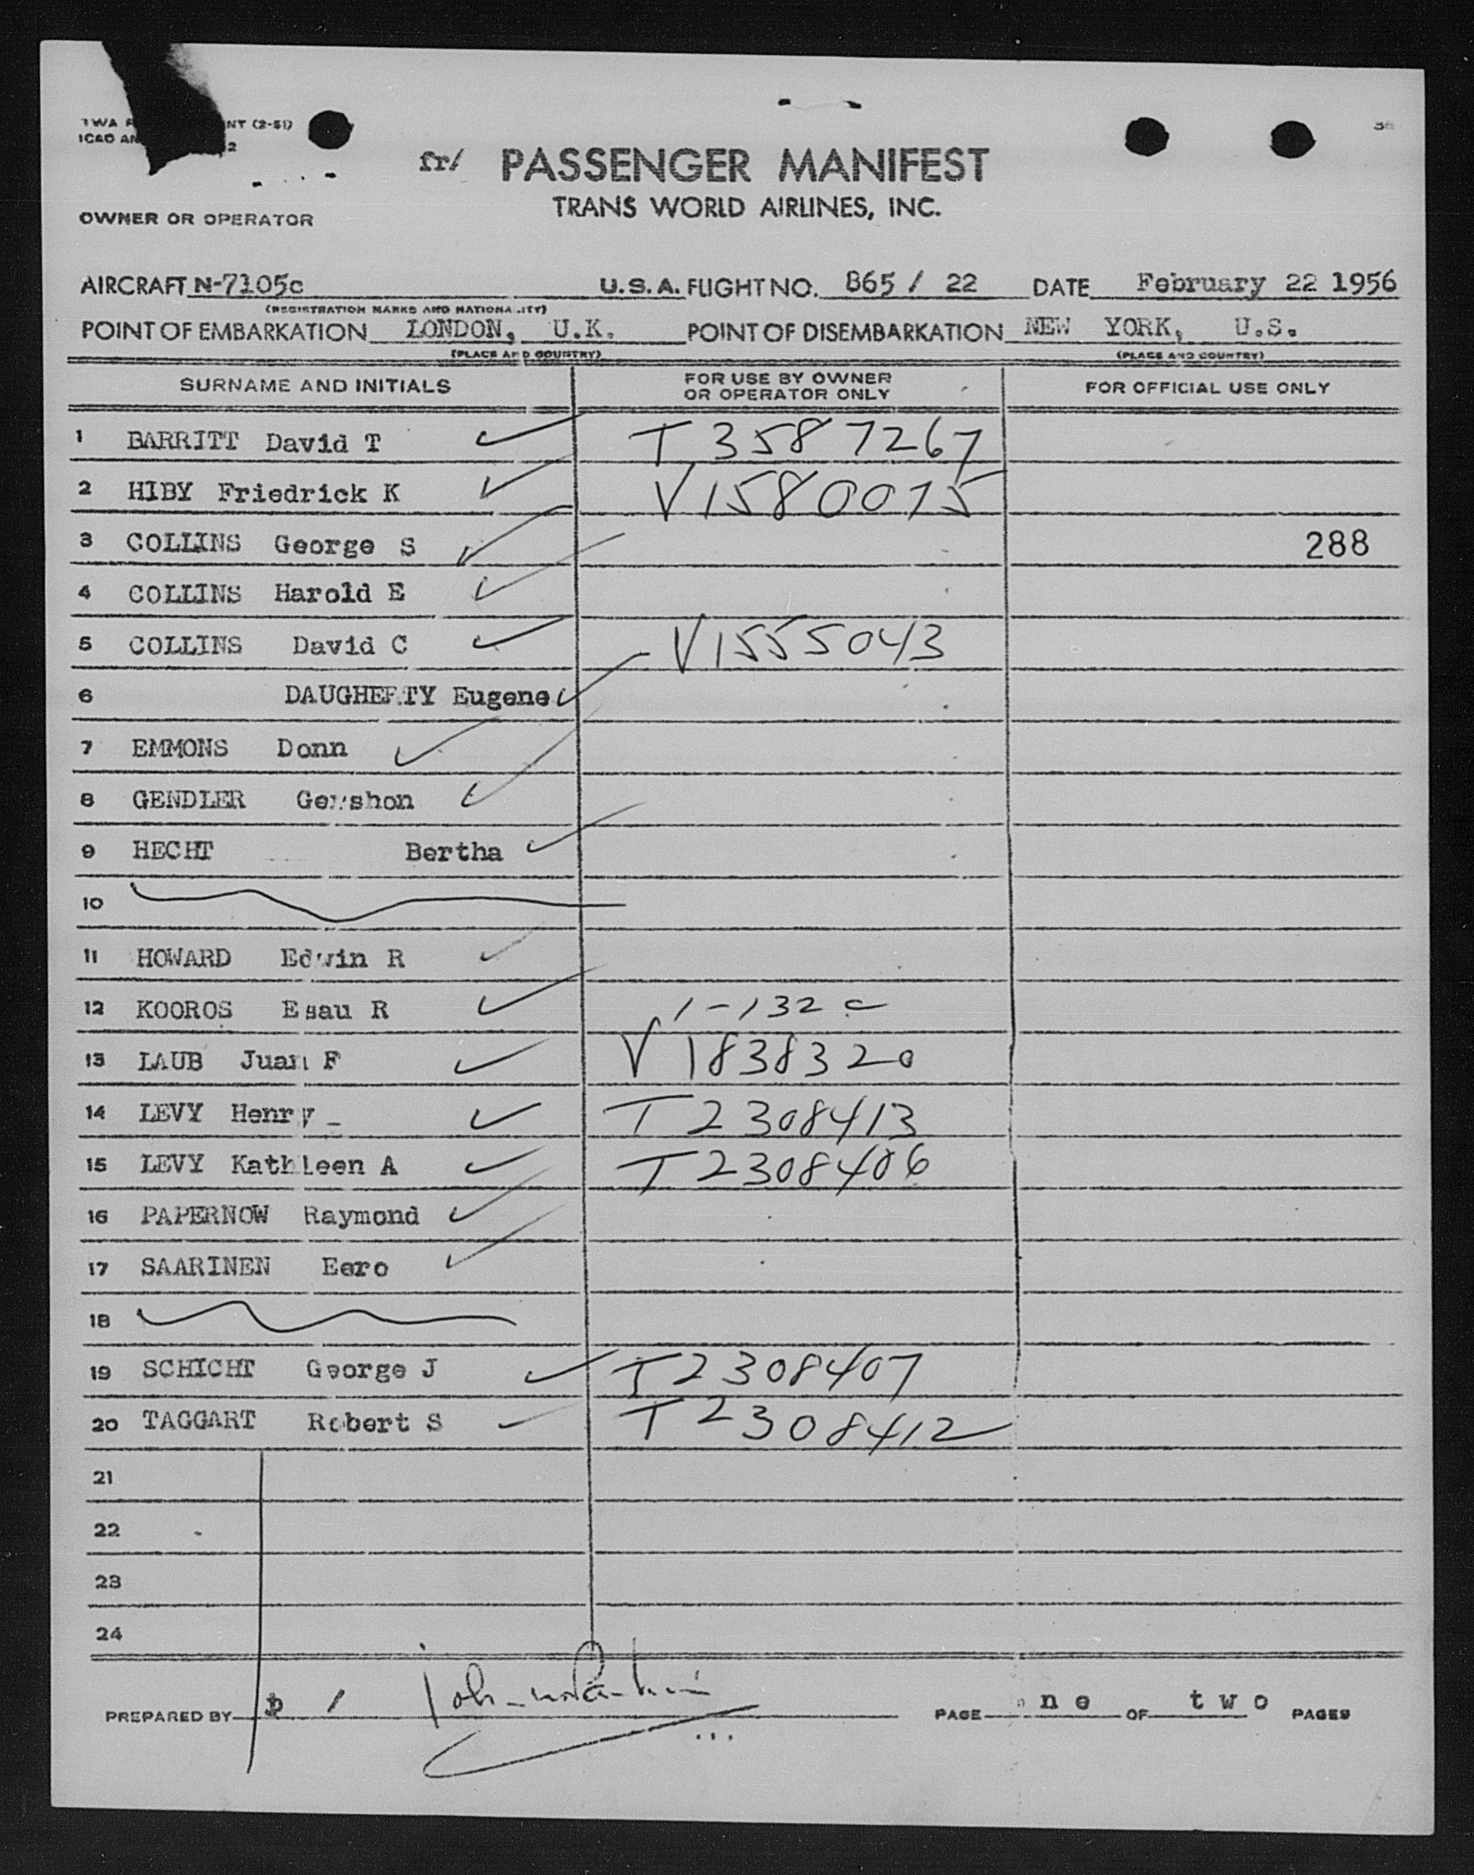 TWA NT (2-51)
ICAO AN 2
fr/ PASSENGER MANIFEST
TRANS WORLD AIRLINES, INC.
OWNER OR OPERATOR
AIRCRAFT N-7105c U.S.A. FLIGHT NO. 865 / 22 DATE February 22 1956
(REGISTRATION MARKS AND NATIONALITY)
POINT OF EMBARKATION LONDON, U.K. POINT OF DISEMBARKATION NEW YORK, U.S.
(PLACE AND COUNTRY) (PLACE AND COUNTRY)
SURNAME AND INITIALS FOR USE BY OWNER OR OPERATOR ONLY FOR OFFICIAL USE ONLY
1 BARRITT David T T 3587267
2 HIBY Friedrick K V1580075
3 COLLINS George S 288
4 COLLINS Harold E
5 COLLINS David C V1555043
6 DAUGHERTY Eugene
7 EMMONS Donn
8 GENDLER Gershon
9 HECHT Bertha
10
11 HOWARD Edwin R
12 KOOROS Esau R 1-132 c
13 LAUB Juan F V 1838320
14 LEVY Henry - T 2308413
15 LEVY Kathleen A T2308406
16 PAPERNOW Raymond
17 SAARINEN Eero
18
19 SCHICHT George J T2308407
20 TAGGART Robert S T 2308412
21
22
23
24
PREPARED BY p / PAGE one OF two PAGES